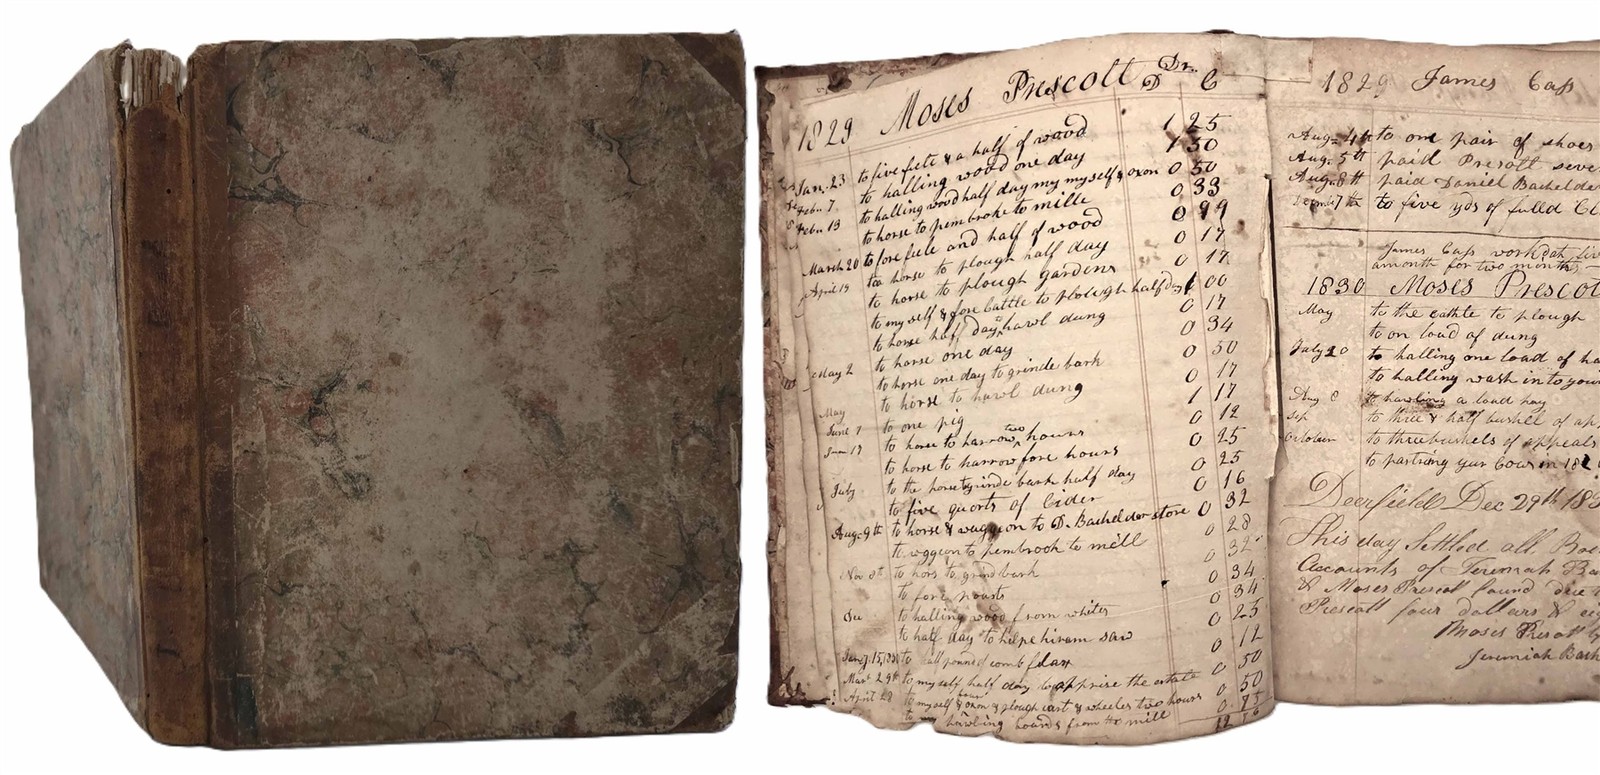 Moses Prescott Dr.
1829 D C
Jan. 23 to five fete & a half of wood 1 25
to halling wood one day 1 50
Febu 7 to halling wood half day my myself & oxon 0 50
Febu 13 to horse to pembroke to mille 0 33
March 20 to fore fete and half of wood 0 99
April 19 too horse to plough half day 0 17
to horse to plough gardens 0 17
to my self & fore Cattle to plough half day 1 00
to horse half day to hawl dung 0 17
to horse one day 0 34
May 2 to horse one day to grinde bark 0 50
to horse to hawl dung 0 17
May to one pig 1 17
June 7 to horse to harrow two hours 0 12
June 17 to horse to harrow fore hours 0 25
to the horse to grinde bark half day 0 25
July to five quorts of Cider 0 16
Aug. 9th to horse & waggeon to D. Bachelder store 0 32
to wggeon to pembrook to mell 0 28
Nov 8th to hors to grind bark 0 32
to fore 0 34
Dec to halling wood from whites 0 34
to half day to helpe hiram saw 0 25
Jany. 15, 1830 to pound of comb flax 0 12
Mar. 29th to myself half day to apprise the estate 0 50
April 29 to my self four oxon & plough cart & wheeles two hours 0 50
to hawling boards from the mill 0 75
12
1829 James Cass
Aug. 4th to one pair of shoes
Aug. 5th paid Prescott
Aug. 8th paid Daniel Bachelder
7th to five yds of fulled
James Cass work
amonth for two months
1830 Moses Prescot
May to the cattle to plough
to on load of dung
July 20 to halling one load of
to halling wash in to your
Aug 8 to hawling a load hay
Sep to three & half bushell of
October to three bushels of appeals
to pastring your Cows in
Deerfield Dec 29th
This day Settled all
Accounts of Jeremiah
& Moses Prescott found due
Prescott four dollars &
Moses Prescott
Jeremiah